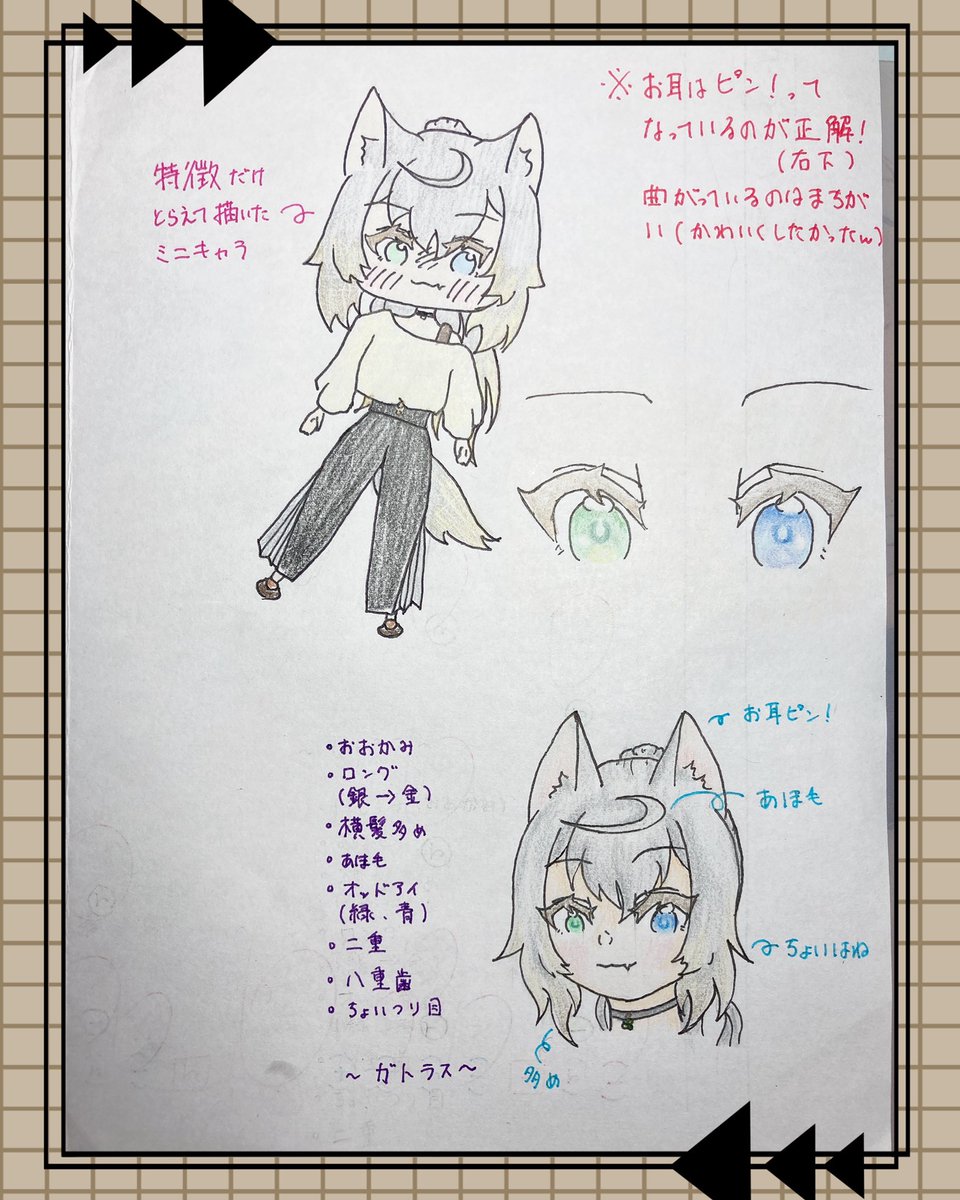 特徴だけ
とらえて描いた
ミニキャラ
※お耳はピン!って
なっているのが正解!
(右下)
曲がっているのはまちが
い(かわいくしたかったw)
・おおかみ
・ロング
(銀→金)
・横髪多め
・あほ毛
・オッドアイ
(緑、青)
・二重
・八重歯
・ちょいつり目
~ガトラス~
お耳ピン!
あほ毛
ちょいはね
多め